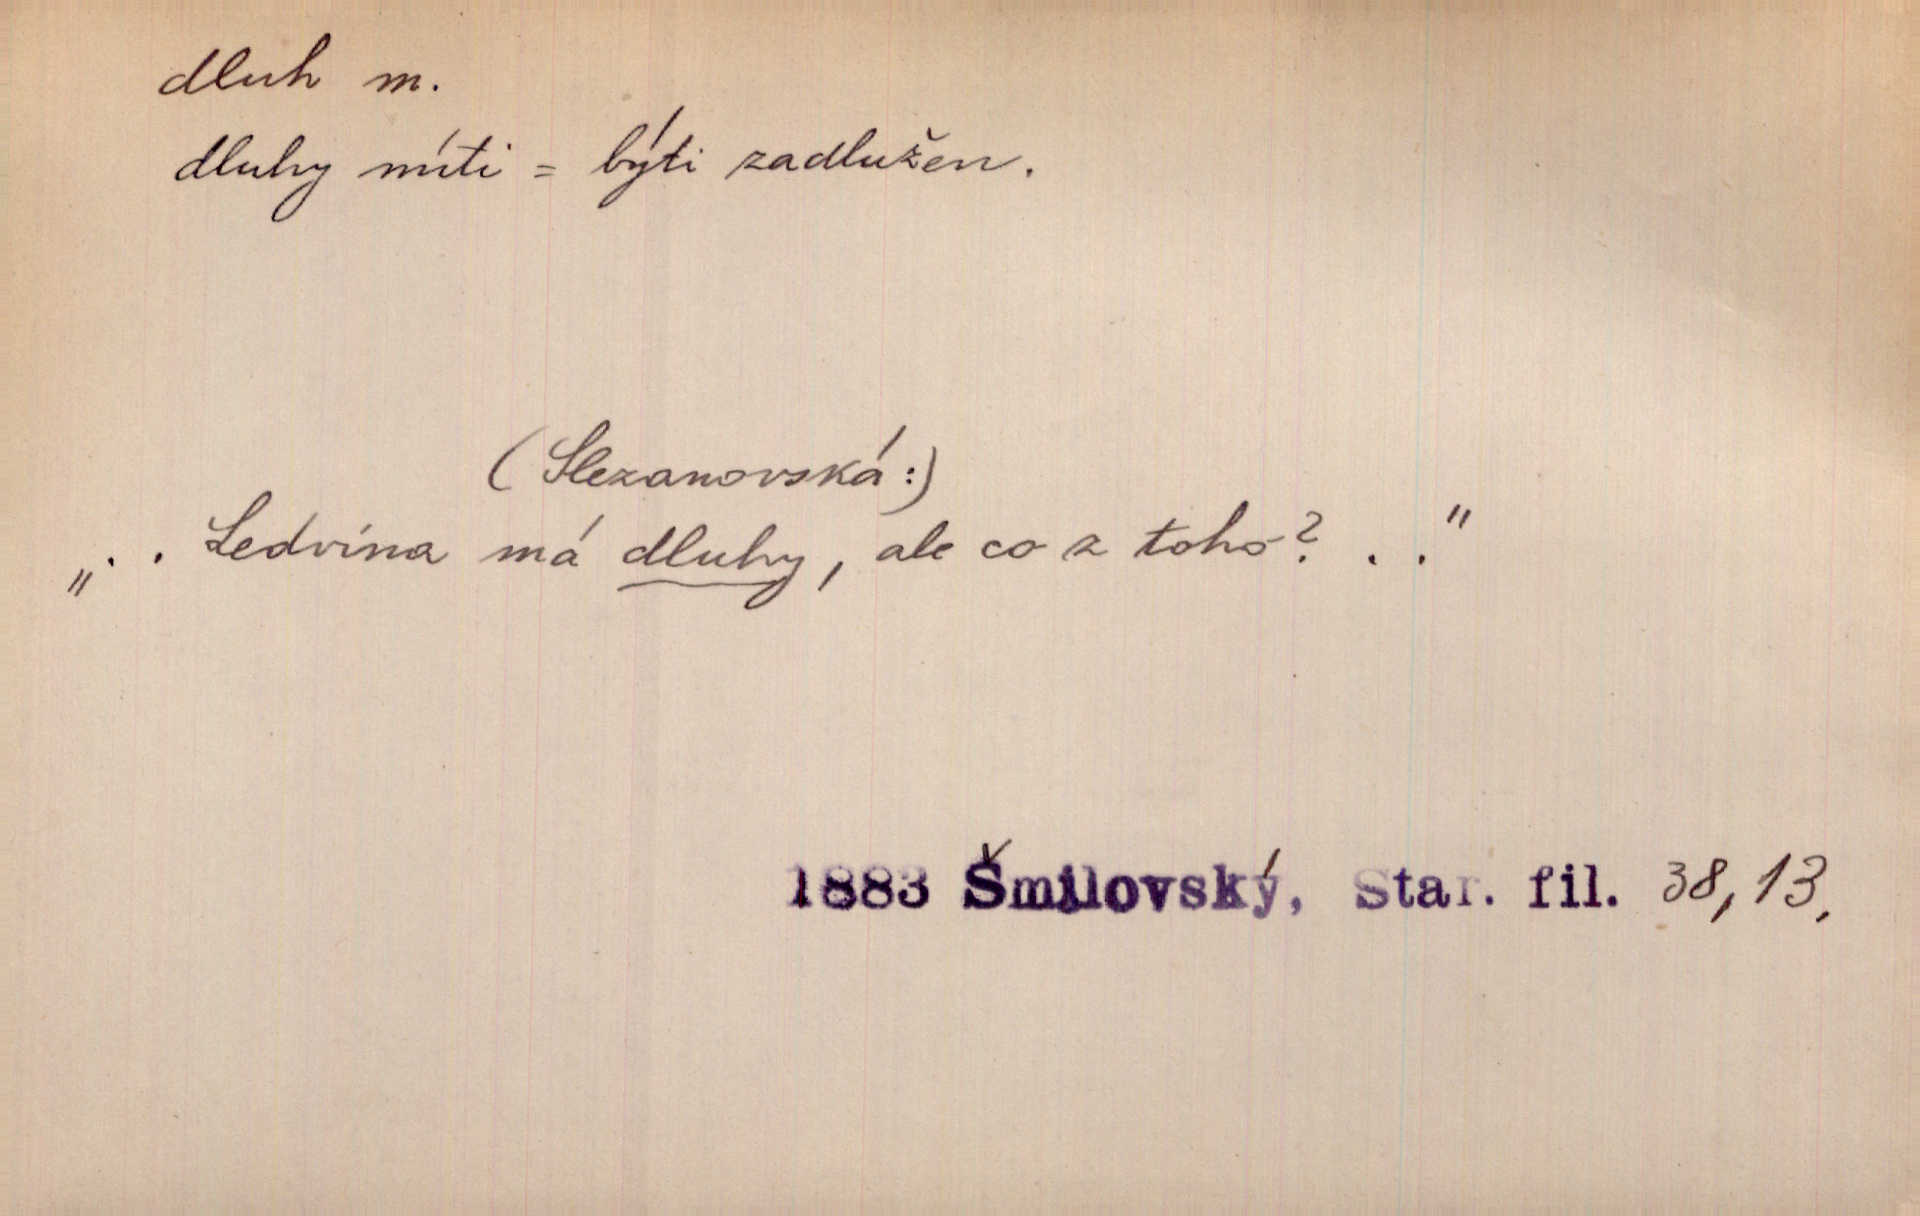 dluh m.
dluhy míti = býti zadlužen.
(Slezanovská:)
„. . Ledvina má dluhy, ale co z toho? . ."
1883 Šmilovský, Star. fil. 38,13.